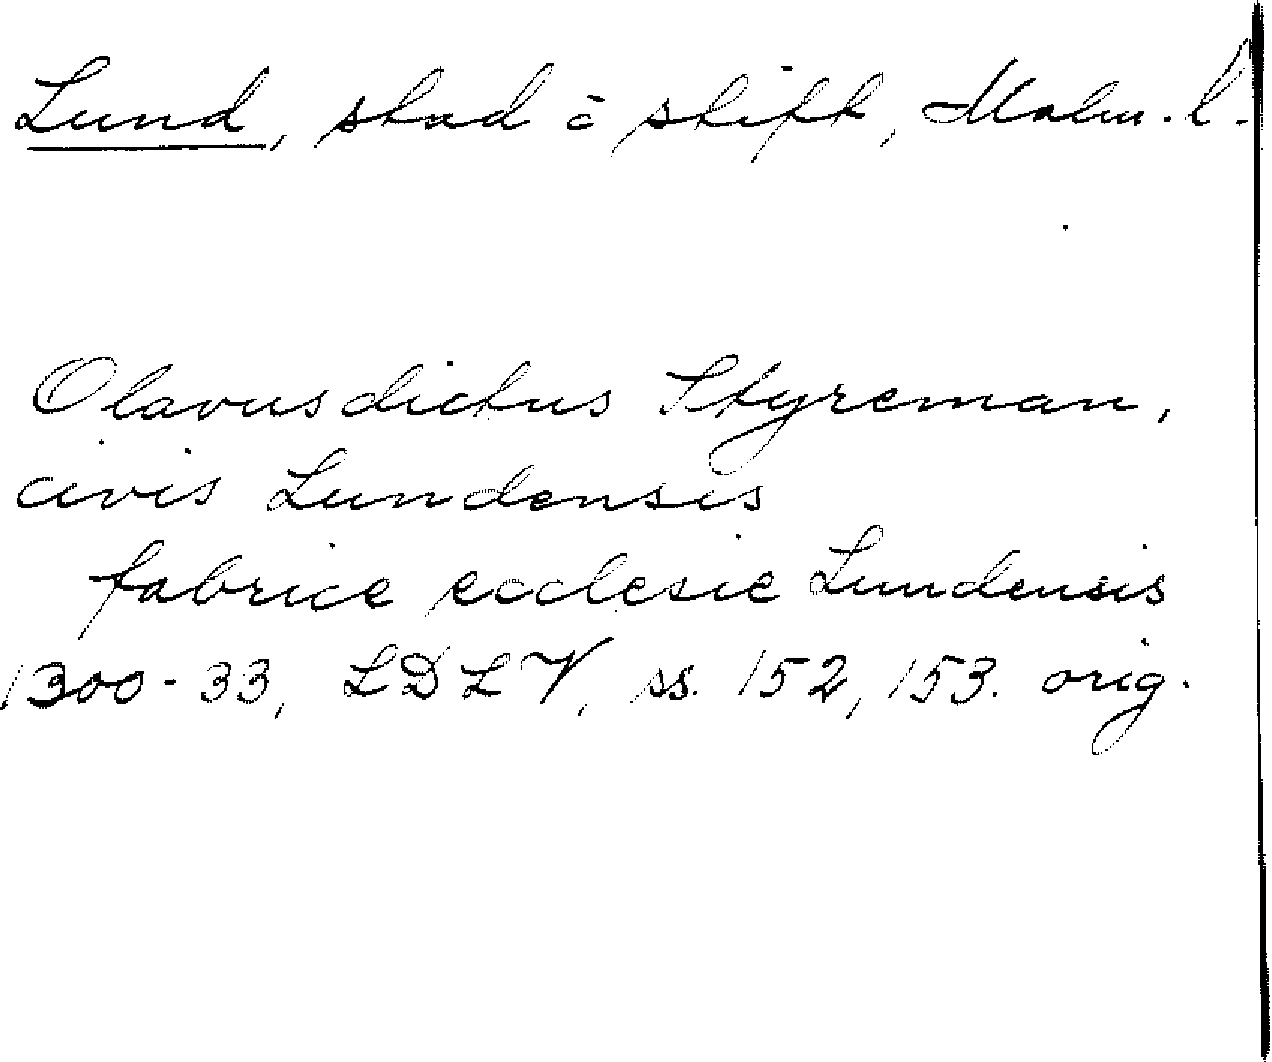 Lund, stad o stift, Malm. l.
Olavus dictus Styreman,
civis Lundensis
fabrice ecclesie Lundensis
1300-33, LDLV, ss. 152, 153. orig.